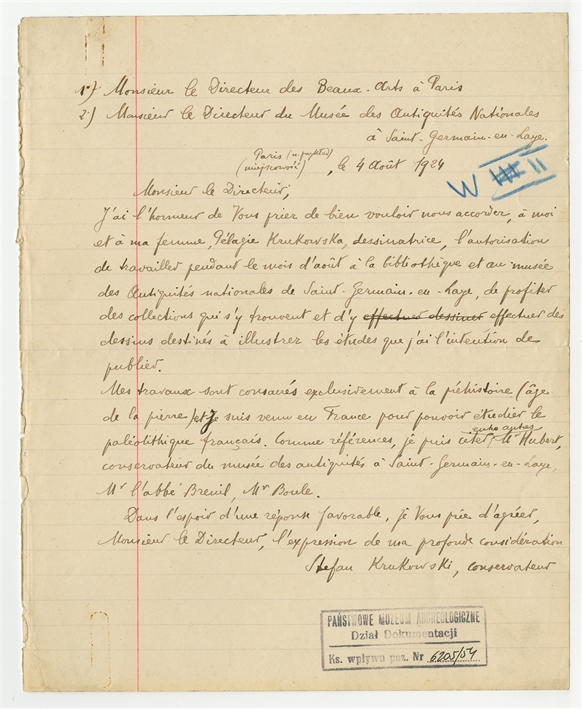 1°) Monsieur le Directeur des Beaux-Arts à Paris
2) Monsieur le Directeur du Musée des Antiquités Nationales
à Saint-Germain-en-Laye.
Paris (n. przykład)
(miejscowość) , le 4 Août 1924
W II
Monsieur le Directeur,
J'ai l'honneur de Vous prier de bien vouloir nous accorder, à moi
et à ma femme, Pélagie Krukowska, dessinatrice, l'autorisation
de travailler pendant le mois d'août à la bibliothèque et au musée
des Antiquités nationales de Saint-Germain-en-Laye, de profiter
des collections qui s'y trouvent et d'y effectuer dessiner effectuer des
dessins destinés à illustrer les études que j'ai l'intention de
publier.
Mes travaux sont consacrés exclusivement à la préhistoire (âge
de la pierre) et je suis venu en France pour pouvoir étudier le
paléolithique français. Comme références, je puis citer, Mr Hubert,
conservateur du musée des antiquités à Saint-Germain-en-Laye,
Mr l'abbé Breuil, Mr Boule.
Dans l'espoir d'une réponse favorable, je Vous prie d'agréer,
Monsieur le Directeur, l'expression de ma profonde considération
Stefan Krukowski, conservateur
PAŃSTWOWE MUZEUM ARCHEOLOGICZNE
Dział Dokumentacji
Ks. wpływu poz. Nr 6205/54